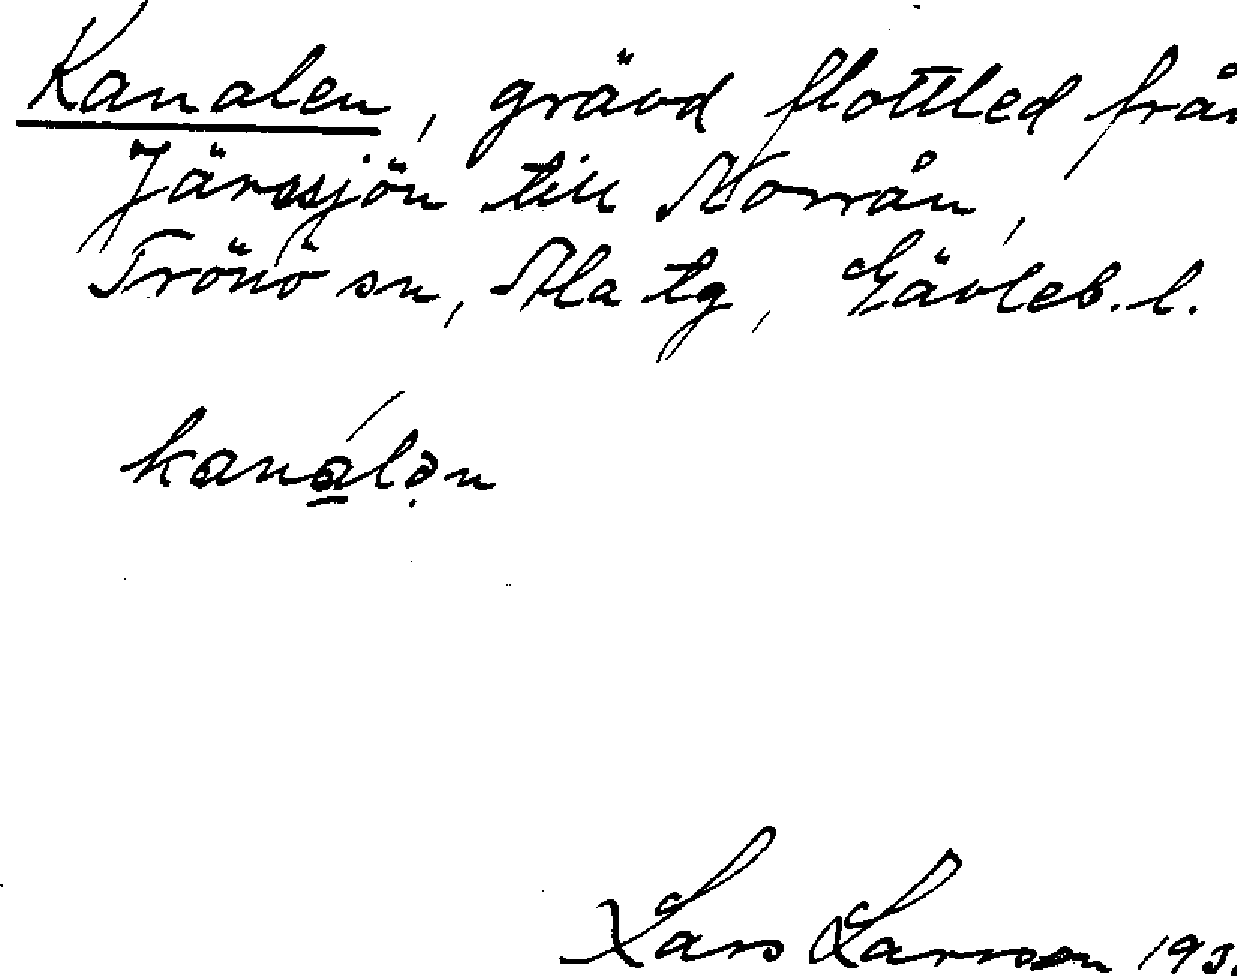 Kanalen, grävd flottled från
Järvsjön till Norrån,
Trönö sn, Ala tg, Gävleb. l.
kanálən
Lars Larsson 193